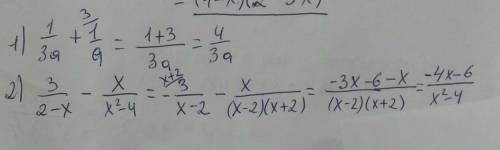 1) 1/(3a) + 3\1/a = (1+3)/(3a) = 4/(3a)
2) 3/(2-x) - x/(x²-4) = - x+2\3/(x-2) - x/((x-2)(x+2)) = (-3x-6-x)/((x-2)(x+2)) = (-4x-6)/(x²-4)